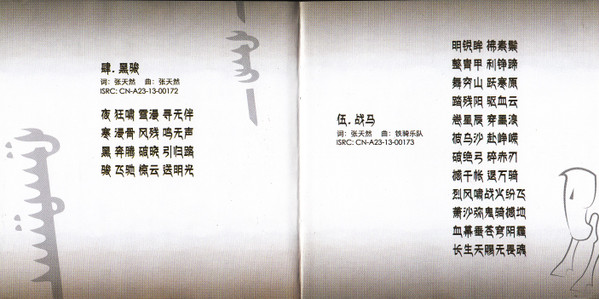 肆.黑骏
词：张天然 曲：张天然
ISRC: CN-A23-13-00172
夜 狂啸 雪漫 寻无伴
寒 漫骨 风残 鸣无声
黑 奔腾 破晓 引归路
骏 飞驰 掠云 送明光
伍.战马
词：张天然 曲：铁骑乐队
ISRC: CN-A23-13-00173
明锐眸 拂素鬃
整胄甲 利铮蹄
舞穷山 跃寒原
踏残阳 驱血云
戮星辰 穿墨浪
披乌沙 赴峥嵘
破绝弓 碎赤刃
撼千帐 退万骑
烈风啸战火纷飞
萧沙弥鬼骑撼地
血幕垂苍穹阴霾
长生天赐无畏魂